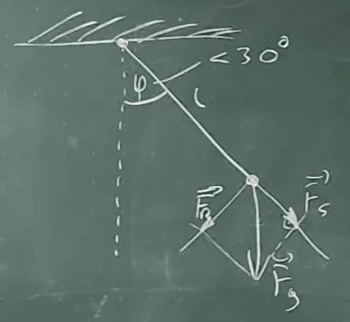 < 30°
φ
l
F⃗s
F⃗g